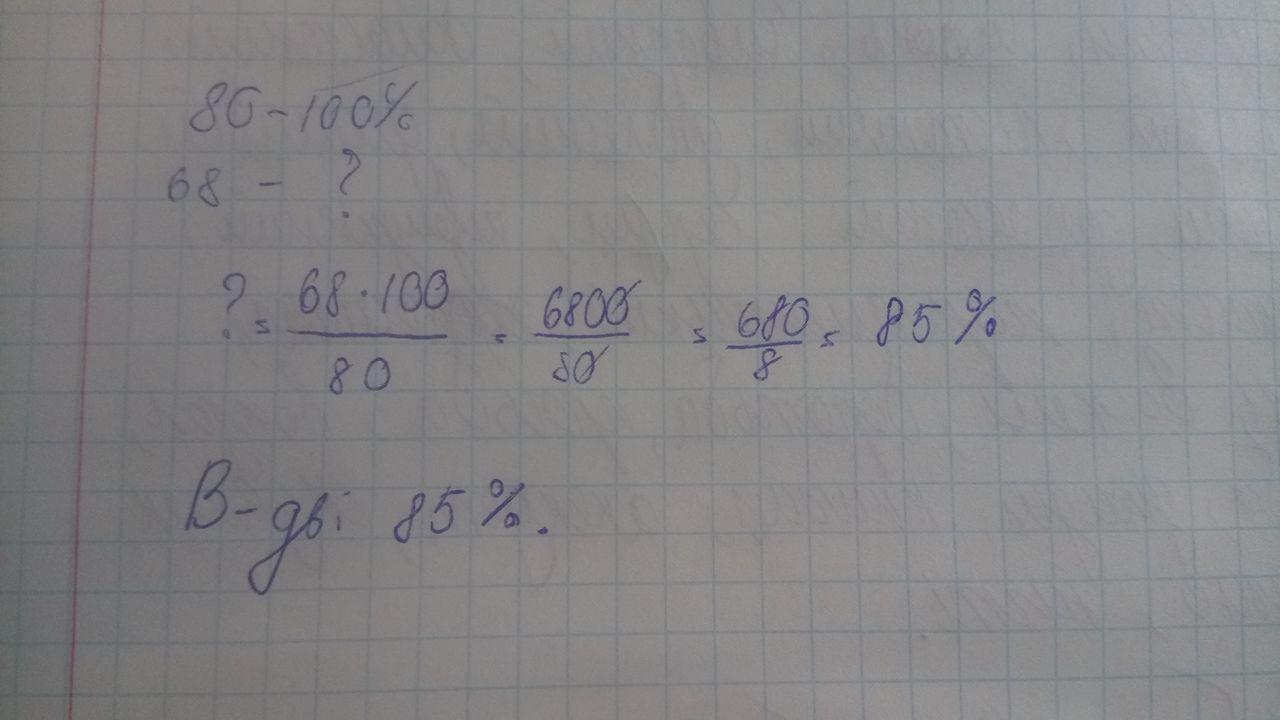 80 - 100%
68 - ?
? = 68 · 100 / 80 = 6800 / 80 = 680 / 8 = 85 %
В-дь: 85 %.